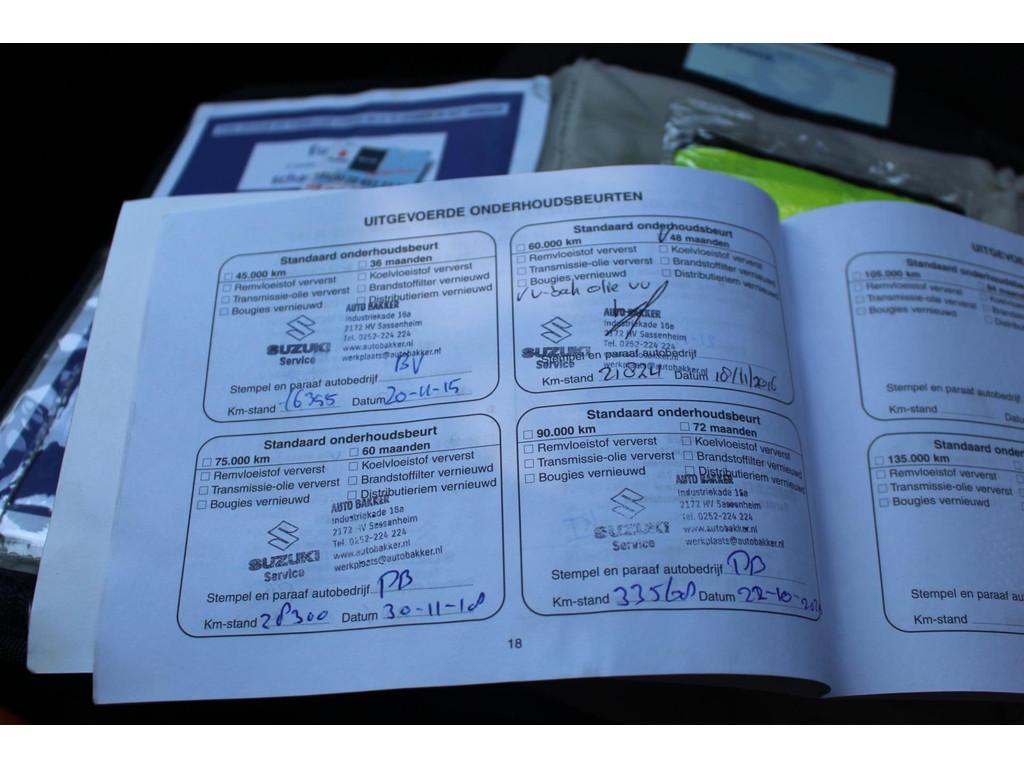 UITGEVOERDE ONDERHOUDSBEURTEN
Standaard onderhoudsbeurt
45.000 km 36 maanden
Remvloeistof ververst Koelvloeistof ververst
Transmissie-olie ververst Brandstoffilter vernieuwd
Bougies vernieuwd Distributieriem vernieuwd
AUTO BAKKER
Industriekade 16a
2172 HV Sassenheim
Tel. 0252-224 224
www.autobakker.nl
werkplaats@autobakker.nl
SUZUKI
Service
Stempel en paraaf autobedrijf BV
Km-stand 16355 Datum 20-11-15
Standaard onderhoudsbeurt
60.000 km V 48 maanden
Remvloeistof ververst Koelvloeistof ververst
Transmissie-olie ververst Brandstoffilter vernieuwd
Bougies vernieuwd Distributieriem vernieuwd
olie
AUTO BAKKER
Industriekade 16a
2172 HV Sassenheim
Tel. 0252-224 224
www.autobakker.nl
werkplaats@autobakker.nl
SUZUKI
Service
Stempel en paraaf autobedrijf
Km-stand 21024 Datum 18/11/2016
Standaard onderhoudsbeurt
75.000 km 60 maanden
Remvloeistof ververst Koelvloeistof ververst
Transmissie-olie ververst Brandstoffilter vernieuwd
Bougies vernieuwd Distributieriem vernieuwd
AUTO BAKKER
Industriekade 16a
2172 HV Sassenheim
Tel. 0252-224 224
www.autobakker.nl
werkplaats@autobakker.nl
SUZUKI
Service
Stempel en paraaf autobedrijf PB
Km-stand 28300 Datum 30-11-18
Standaard onderhoudsbeurt
90.000 km 72 maanden
Remvloeistof ververst Koelvloeistof ververst
Transmissie-olie ververst Brandstoffilter vernieuwd
Bougies vernieuwd Distributieriem vernieuwd
AUTO BAKKER
Industriekade 16a
2172 HV Sassenheim
Tel. 0252-224 224
www.autobakker.nl
werkplaats@autobakker.nl
SUZUKI
Service
Stempel en paraaf autobedrijf PB
Km-stand 33568 Datum 22-10-
18
UITGEVOE
Standaard onderhouds
105.000 km
Remvloeistof ververst
Transmissie-olie ververst
Bougies vernieuwd
Stempel en paraaf autobedrij
Km-stand Datum
Standaard onder
135.000 km
Remvloeistof ververst
Transmissie-olie ververst
Bougies vernieuwd
Stempel en paraaf au
Km-stand